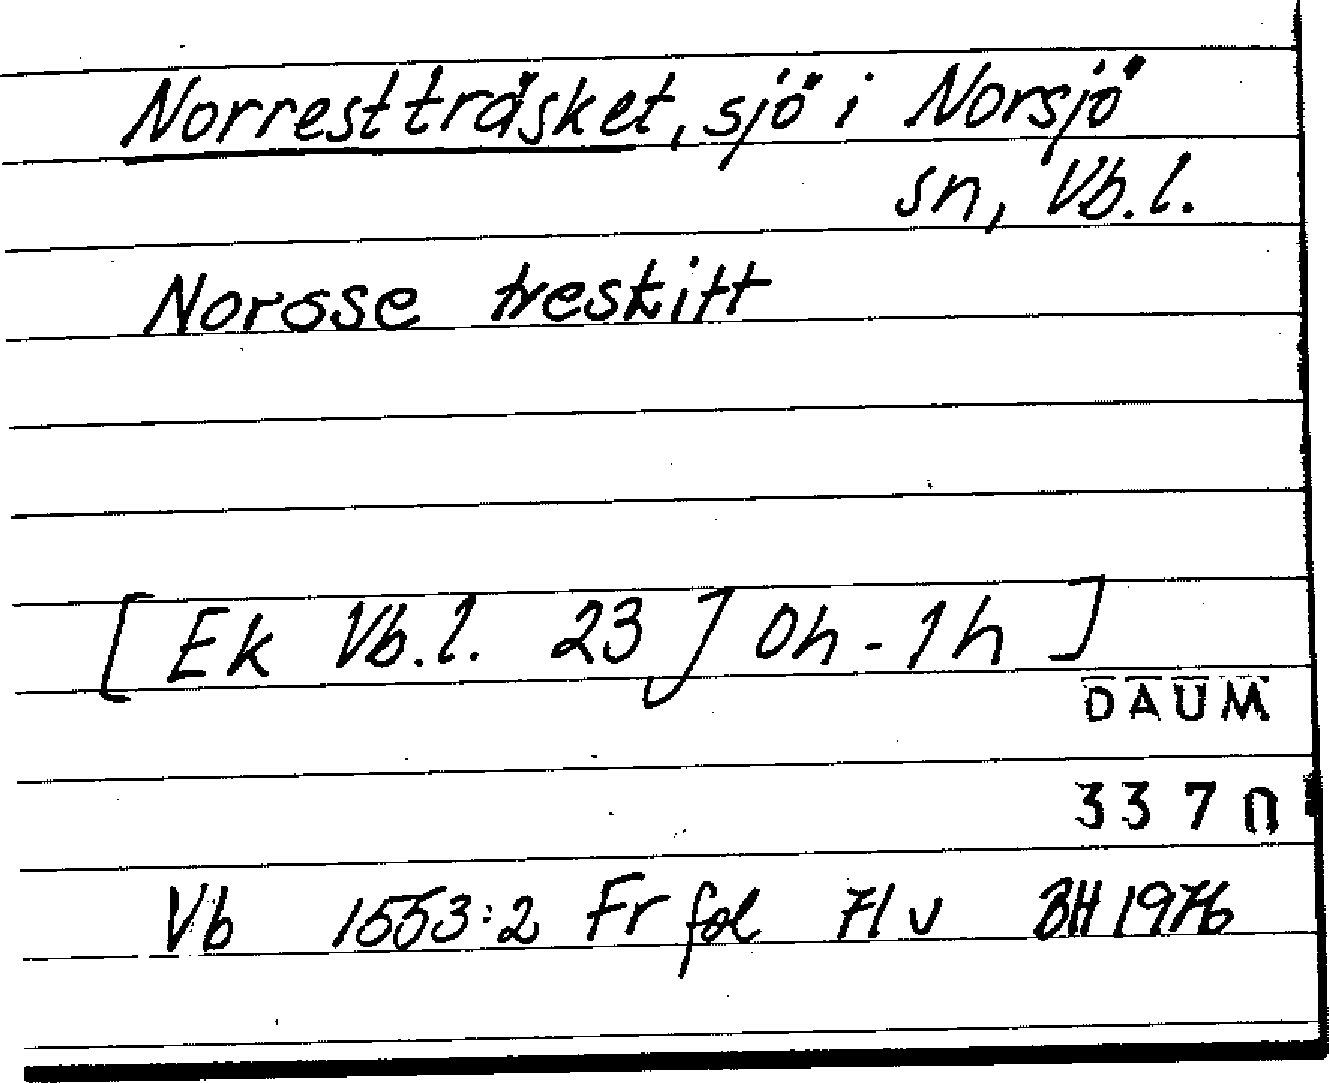 Norrestträsket, sjö i Norsjö
sn, Vb.l.
Norosse treskitt
[Ek Vb.l. 23 J 0h - 1h]
DAUM
337
Vb 1553:2 Fr fol 71 v BH 1976